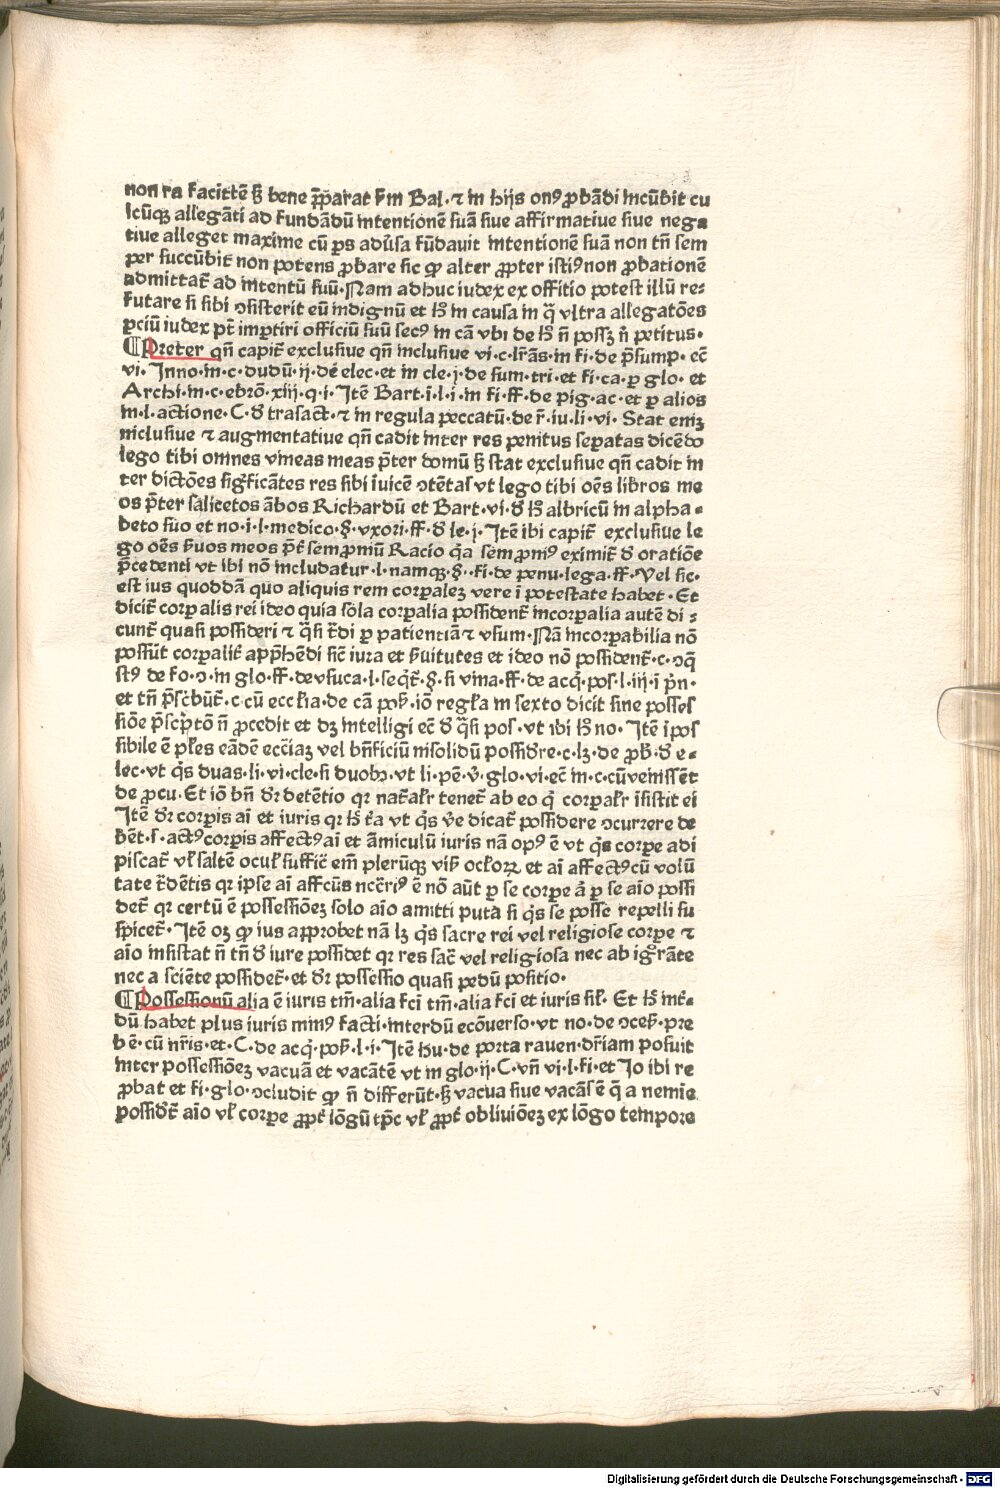 non ra facittē ꝫ bene p̄parat ẜm Bal.⁊ in hijs onꝰ ꝓbādi incūbit cu
icūqꝫ allegāti ad fundādū intentionē suā siue affirmatiue siue nega
tiue alleget maxime cū ps aduersa fūdauit intentionē suā non tn̄ sem
per succūbit non potens ꝓbare sic ꝙ alter ꝓpter istiꝰ non ꝓbationē
admittat̄ ad intentū suū.Nam adhuc iudex ex offitio potest illū re⸗
futare si sibi ↄstiterit eū indignū et hꝫ in causa in q̄ vltra allegatōes
ꝑciū iudex pt̄ imꝑtiri officiū suū secꝰ in cā vbi de hꝫ n̄ possꝫ n̄ petitus.
¶Preter qn̄ capit̄ exclusiue qn̄ inclusiue vi.c.lr̄as.in fi.de p̄sump.ec̄
vi.Inno.in.c.dudū.ij.de elec.et in cle.j.de sum.tri.et fi.ca.ꝑ glo.et
Archi.in.c.ebrō.xiij.q.i.Itē Bart.i.l.i.in fi.ff.de pig.ac.et ꝑ alios
in.l.actione.C.đ trāsact.⁊ in regula peccatū.de r̄.iu.li.vi.Stat eniꝫ
inclusiue ⁊ augmentatiue qn̄ cadit inter res penitus seꝑatas dicēdo
lego tibi omnes vineas meas p̄ter domū ꝫ stat exclusiue qn̄ cadit in
ter dictōes significātes res sibi īuicē ↄtētas vt lego tibi oēs libros me
os p̄ter salicetos ābos Richardū et Bart.vi.đ hꝫ albricū in alpha⸗
beto suo et no.i.l.medico.§.vxori.ff.đ le.j.Itē ibi capit̄ exclusiue le
go oēs ẜuos meos p̄t̄ semproniū Racio q̄a semproniꝰ eximit̄ đ oratiōe
p̄cedenti vt ibi nō includatur.l.namqꝫ.§.fi.de penu.lega.ff.Vel sic.
est ius quoddā quo aliquis rem corꝑaleꝫ vere ī potestate habet.Et
dicit̄ corꝑalis rei ideo quia sola corꝑalia possident̄ incorꝑalia autē di⸗
cunt̄ quasi possideri ⁊ q̄si t̄di ꝑ patientiā ⁊ vsum.Nā incorꝑabilia nō
possūt corꝑalit̄ app̄hēdi sic̄ iura et ẜuitutes et ideo nō possident̄.c.ↄq̄
stꝰ de fo.ↄ.in glo.ff.de vsuca.l.seqt̄.§.si vina.ff.de acq̄.pos.l.iij.i p̄n.
et tn̄ p̄sc̄būt̄.c.cū ecclia.de cā pos̄.iō regła in sexto dicit sine posses
siōe p̄scp̄tō n̄ ꝓcedit et dꝫ intelligi ec̄ đ q̄si pos.vt ibi hꝫ no.Itē īpos
sibile ē pl̄es eādē ecc̄iaꝫ vel bn̄ficiū insolidū possidr̄e.c.lꝫ.de ꝓb̄.đ e⸗
lec.vt q̄s duas.li.vi.cle.si duobꝫ.vt li.pē.v̄.glo.vi.ec̄ in.c.cū venissēt
de ꝓcu.Et iō bn̄ dr̄ detētio qr nat̄alr̄ tenet̄ ab eo q̄ corꝑalr̄ īsistit ei
Itē dr̄ corꝑis aī et iuris qr hꝫ t̄a vt q̄s v̄e dicat̄ possidere ↄcurrere de
bēt.s.actꝰ corꝑis affectꝰ aī et āmiculū iuris nā opꝰ ē vt q̄s corꝑe adi
piscat̄ vł saltē oculꝭ suffic̄ em̄ plerūqꝫ visꝰ ocłorꝝ et aī affectꝰ cū volū
tate t̄dētis qr ipse aī affc̄ūs ncc̄riꝰ ē nō aūt ꝑ se corꝑe a̍ ꝑ se aīo possi
det̄ qr certū ē possessiōeꝫ solo aīo amitti puta si q̄s se posse repelli su
sp̄icet̄.Itē oꝫ ꝙ ius approbet nā lꝫ q̄s sacre rei vel religiose corꝑe ⁊
aīo insistat n̄ tn̄ đ iure possidet qr res sac̄ vel religiosa nec ab igr̄āte
nec a sciēte possidet̄.et dr̄ possessio quasi pedū positio.
¶Possessionū alia ē iuris tm̄.alia fc̄i tm̄.alia fc̄i et iuris sil̄.Et hꝫ int̄⸗
dū habet plus iuris minꝰ facti.interdū ecōuerso.vt no.de ↄceb̄.pre
bē.cū nr̄is.et.C.de acq̄.pos̄.l.i.Itē hu.de porta rauen.dr̄iam posuit
inter possessiōeꝫ vacuā et vacātē vt in glo.ij.C.vn̄ vi.l.fi.et Io ibi re
ꝓbat et fi.glo.ↄcludit ꝙ n̄ differūt.ꝫ vacua siue vacās ē q̄ a nemīe
possidet̄ aīo vł corꝑe ꝓpt̄ lōgū tp̄c vł ꝓpt̄ obliuiōeꝫ ex lōgo tempore
Digitalisierung gefördert durch die Deutsche Forschungsgemeinschaft - DFG